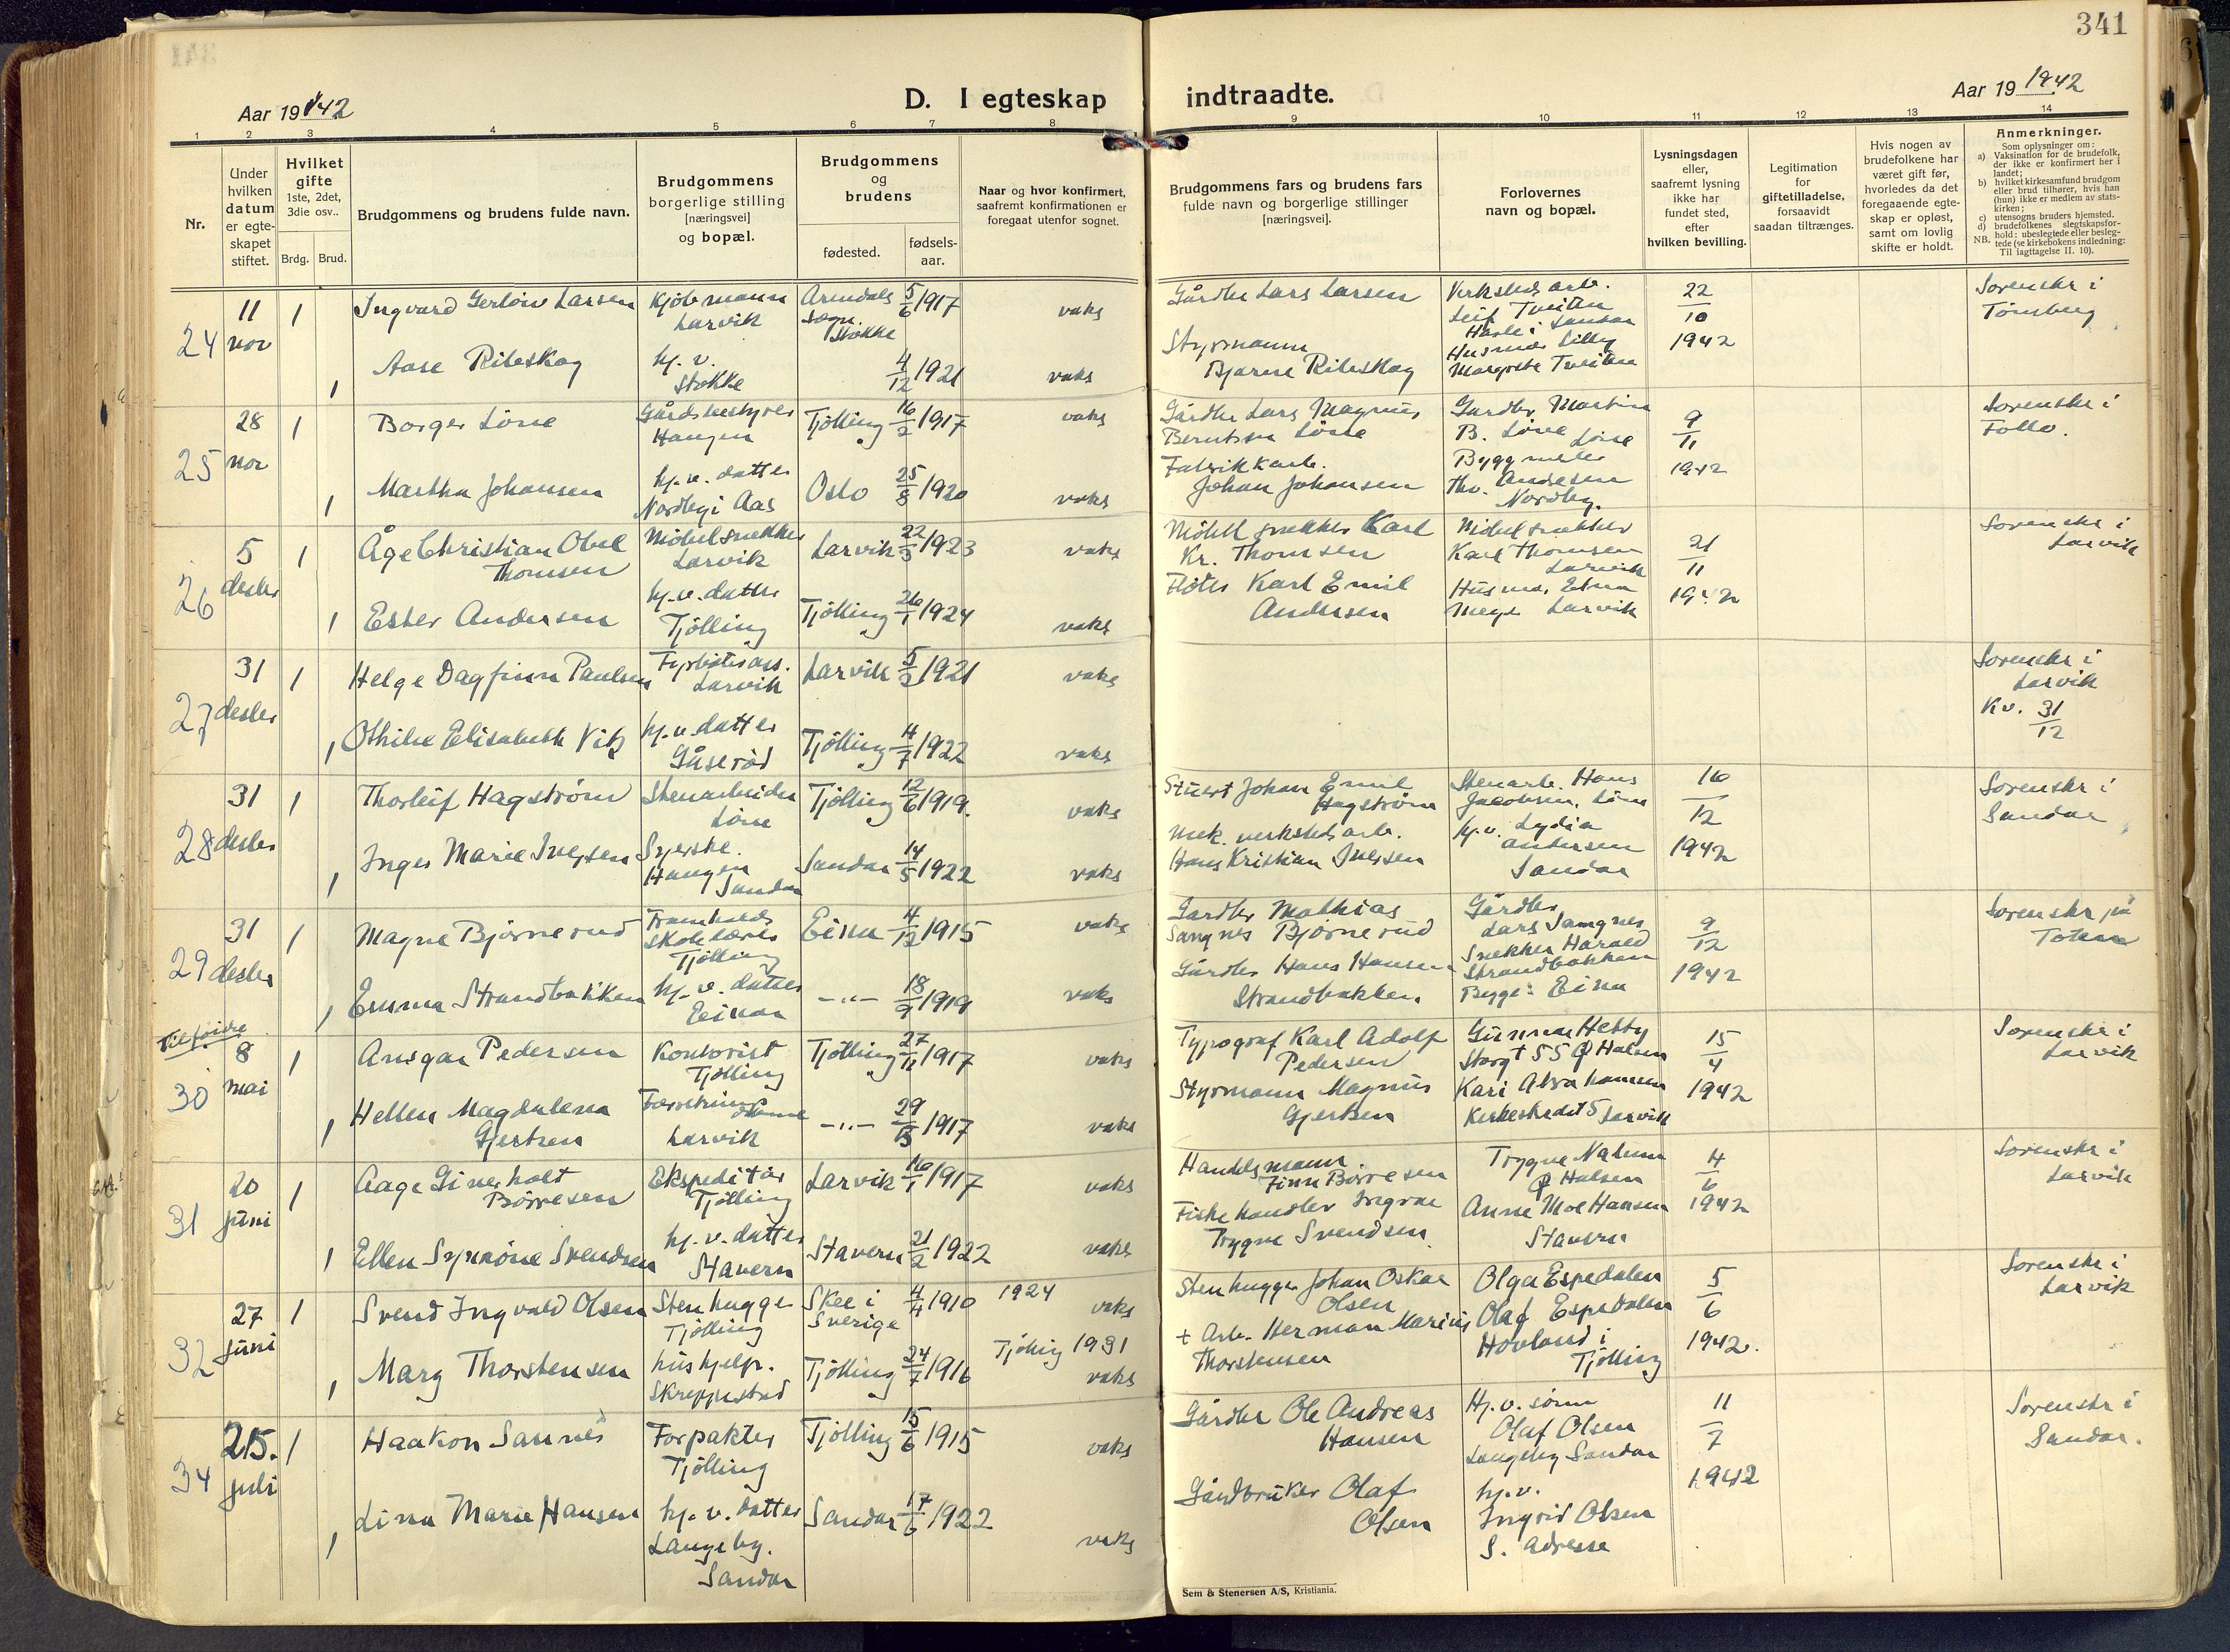 341
Aar 1942
D. I egteskap indtraadte.
Aar 19 1942
1 2 3 4 5 6 7 8 9 10 11 12 13 14
Nr.
Under hvilken datum er egte-skapet stiftet.
Hvilket gifte
1ste, 2det, 3die osv..
Brdg. Brud.
Brudgommens og brudens fulde navn.
Brudgommens borgerlige stilling [næringsvei] og bopæl.
Brudgommens og brudens
fødested. fødsels-aar.
Naar og hvor konfirmert, saafremt konfirmationen er foregaat utenfor sognet.
Brudgommens fars og brudens fars fulde navn og borgerlige stillinger [næringsvei].
Forlovernes navn og bopæl.
Lysningsdagen eller, saafremt lysning ikke har fundet sted, efter hvilken bevilling.
Legitimation for giftetilladelse, forsaavidt saadan tiltrænges.
Hvis nogen av brudefolkene har været gift før, hvorledes da det foregaaende egte-skap er opløst, samt om lovlig skifte er holdt.
Anmerkninger.
Som oplysninger om:
a) Vaksination for de brudefolk, der ikke er konfirmert her i landet;
b) hvilket kirkesamfund brudgom eller brud tilhører, hvis han (hun) ikke er medlem av stats-kirken;
c) utensogns bruders hjemsted.
d) brudefolkenes slegtskapsfor-hold: ubeslegtede eller besleg-tede (se kirkebokens indledning: Til iagttagelse II. 10).
NB.
24 11 nov 1 Ingvard Larsen Kjøbmann Larvik Arendals sogn. Stokke 5/6 1917 vaks Gårdbr Lars Larsen Verksteds arb. Leif Tveiten Hasle i Sandar 22/10 1942 Sorenskr i Tønsberg
1 Aase Ribeskog hj. v. Stokke 4/12 1921 vaks Styrmann Bjarne Ribeskog Husmor Lilly Margrete Tveiten
25 28 nov 1 Borger Løve Gårdsbestyrer Haugen Tjølling 16/2 1917 vaks Gårdbr Lars Magnus Berntsen Løve Gardbr. Martin B. Løve Løve 9/11 1942 Sorenskr i Follo.
1 Martha Johansen hj. v. datter Nordby i Aas Oslo 25/8 1920 vaks Fabrikkarb. Johan Johansen Byggmester Thv. Andresen Nordby
26 5 desbr 1 Åge Christian Obel Thomsen Møbelsnekker Larvik Larvik 22/3 1923 vaks Møbelsnekker Karl Kr. Thomsen Møbelsnekker Karl Thomsen Larvik 21/11 1942 Sorenskr i Larvik
1 Ester Andersen hj. v. datter Tjølling Tjølling 26/1 1924 vaks Fløter Karl Emil Andersen Husmor Larvik
27 31 desbr 1 Helge Dagfinn Paulsen Fyrbøterass. Larvik Larvik 5/2 1921 vaks Sorenskr i Larvik Kv. 31/12
1 Othilie Elisabeth Vik hj. v. datter Gåserød Tjølling 4/7 1922 vaks
28 31 desbr 1 Thorleif Hagstrøm Stenarbeider Løve Tjølling 12/6 1919. vaks Stuert Johan Emil Hagstrøm Stenarb. Hans Jacobsen, Løve 16/12 1942 Sorenskr i Sandar
1 Inger Marie Iversen Syerske. Haugen Sandar Sandar 14/5 1922 vaks Mek. verksteds arb. Hans Kristian Iversen hj. v. Lydia Andersen Sandar
29 31 desbr 1 Magne Bjørnerud Framhalds skole lærer Tjølling Eina 4/12 1915 vaks Gardbr Mathias Sangnes Bjørnerud Gårdbr Lars Sangnes 9/12 1942 Sorenskr på Toten
1 Emma Strandbakken hj. v. datter Einar -"- 18/9 1919 vaks Gårdbr Hans Hansen Strandbakken Snekker Harald Strandbakken Begge: Eina
Tilføide
30 8 mai 1 Ansgar Pedersen Kontorist Tjølling Tjølling 27/11 1917 vaks Typograf Karl Adolf Pedersen Gunnar Hetty Storgt 55 Halsen 15/4 1942 Sorenskr i Larvik
1 Hellen Magdalena Gjertsen Forretnings dame Larvik -"- 29/3 1917 vaks Styrmann Magnus Gjertsen Kari Abrahamsen Kirkestredet 5 Larvik
31 20 juni 1 Aage Ginerholt Børresen Ekspeditør Tjølling Larvik 16/1 1917 vaks Handelsmann Finn Børresen Trygve Nalum Halsen 4/6 1942 Sorenskr i Larvik
1 Ellen Synnøve Svendsen hj. v. datter Stavern Stavern 21/2 1922 vaks Fiskehandler Ingvar Trygve Svendsen Anne Moe Hansen Stavern
32 27 juni 1 Svend Ingvald Olsen Stenhugger Tjølling Skee i Sverige 4/4 1910 1924 vaks Stenhugger Johan Oskar Olsen Olga Espedalen 5/6 1942. Sorenskr i Larvik
1 Mary Thorstensen hushjelp. Skreppestad Tjølling 24/7 1916 Tjølling 1931 vaks + Arb. Herman Marius Thorstensen Olaf Espedalen Hovland i Tjølling
34 25. juli 1 Haakon Sannes Forpakter Tjølling Tjølling 15/6 1915 vaks Gårdbr Ole Andreas Hansen Hj. v. sønn Olaf Olsen Langeby Sandar 11/7 1942 Sorenskr i Sandar.
1 Lina Marie Hansen hj. v. datter Langeby. Sandar Sandar 17/6 1922 vaks Gårdbruker Olaf Olsen hj. v. Ingrid Olsen S. adresse
Sem & Stenersen A/S, Kristiania.